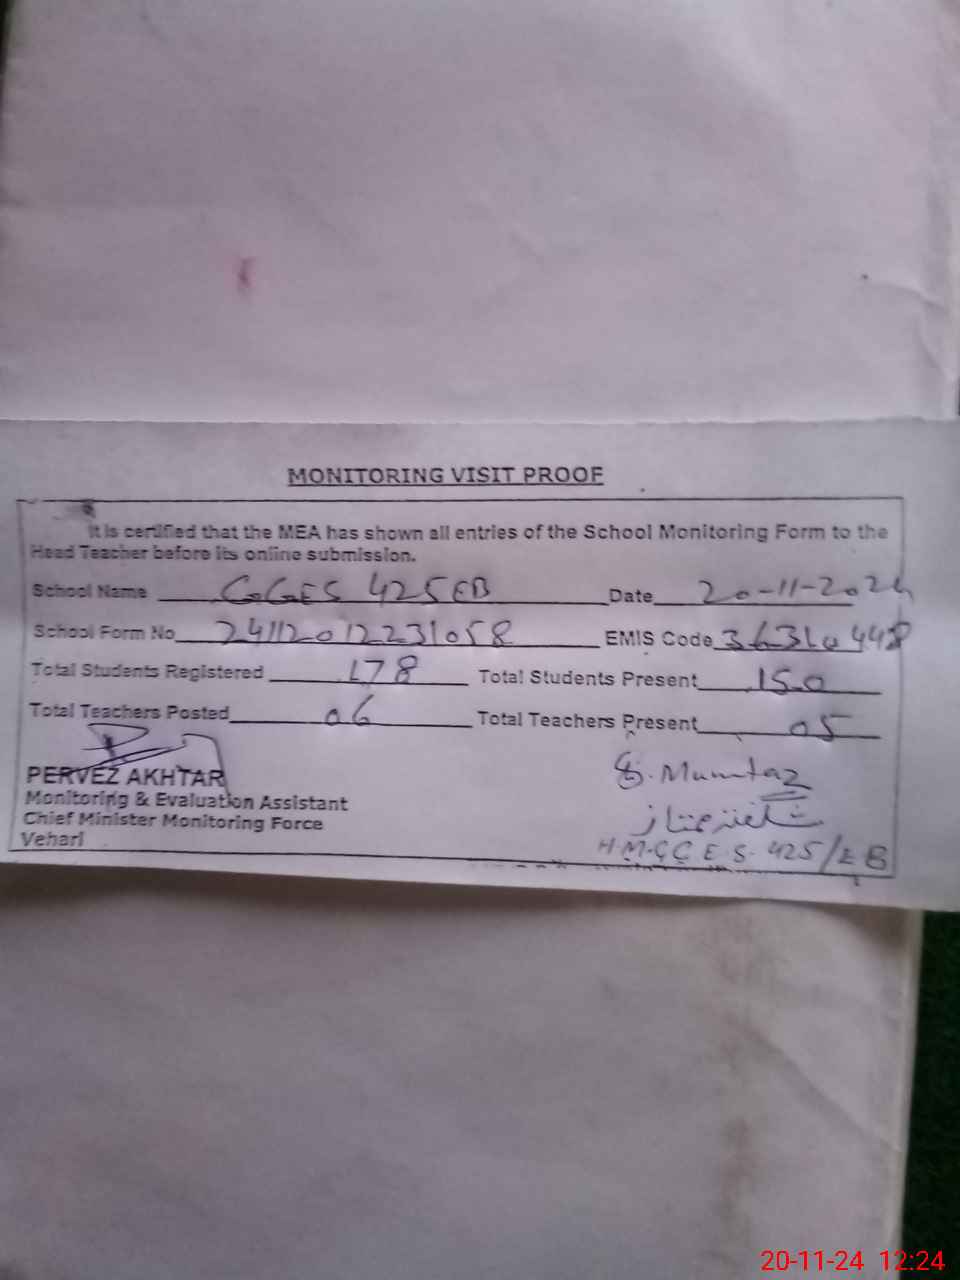 MONITORING VISIT PROOF
It is certified that the MEA has shown all entries of the School Monitoring Form to the
Head Teacher before its online submission.
School Name GGES 425 EB Date 20-11-2024
School Form No 241120122231058 EMIS Code 36310448
Total Students Registered 178 Total Students Present 150
Total Teachers Posted 06 Total Teachers Present 05
PERVEZ AKHTAR
Monitoring & Evaluation Assistant
Chief Minister Monitoring Force
Vehari
S. Mumtaz
شگفتہ ممتاز
H.M.G.G.E.S. 425/EB
20-11-24 12:24